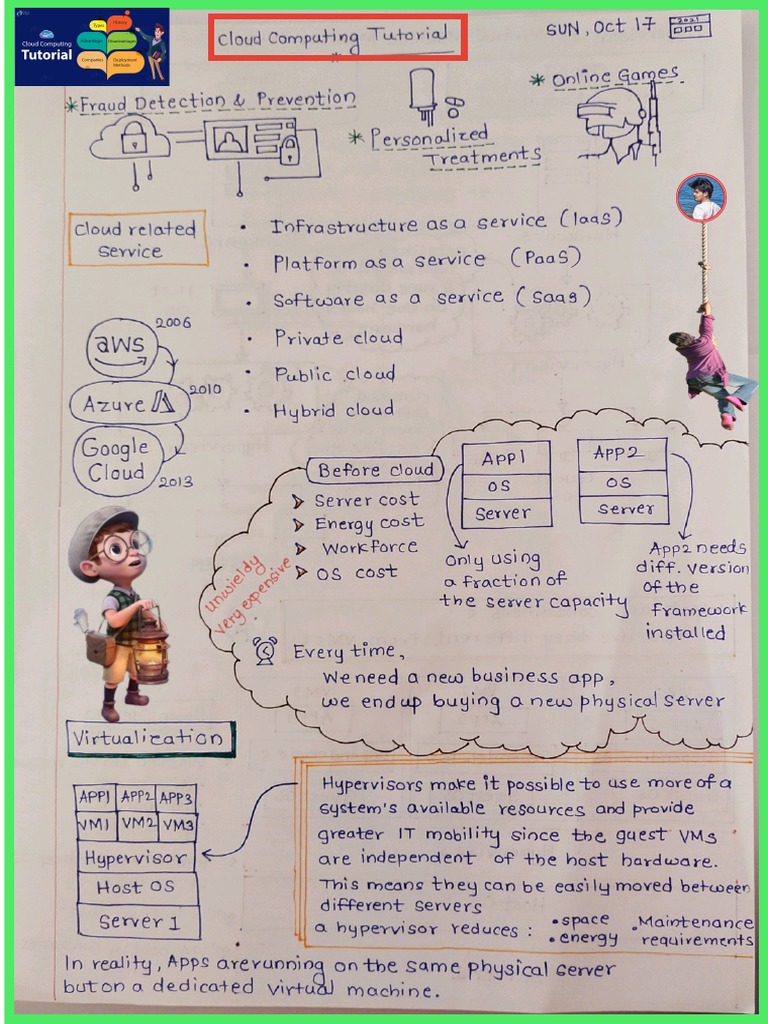 Cloud Computing
Tutorial
Types
History
Advantages
Disadvantages
Companies
Deployment Methods
Cloud Computing Tutorial
SUN, Oct 17
2021
* Fraud Detection & Prevention
* Personalized
Treatments
* Online Games
Cloud related
service
• Infrastructure as a service (Iaas)
• Platform as a service (PaaS)
• Software as a service (Saas)
• Private cloud
• Public cloud
• Hybrid cloud
aws
2006
Azure
2010
Google
Cloud
2013
Before cloud
➤ Server cost
➤ Energy cost
➤ Workforce
➤ OS cost
unwieldy
very expensive
APP1
OS
Server
APP2
OS
Server
Only using
a fraction of
the server capacity
App2 needs
diff. version
of the
framework
installed
Every time,
We need a new business app,
we end up buying a new physical server
Virtualization
APP1 APP2 APP3
VM1 VM2 VM3
Hypervisor
Host OS
Server 1
Hypervisors make it possible to use more of a
system's available resources and provide
greater IT mobility since the guest VMs
are independent of the host hardware.
This means they can be easily moved between
different servers
a hypervisor reduces : • space • Maintenance
• energy requirements
In reality, Apps are running on the same physical server
but on a dedicated virtual machine.